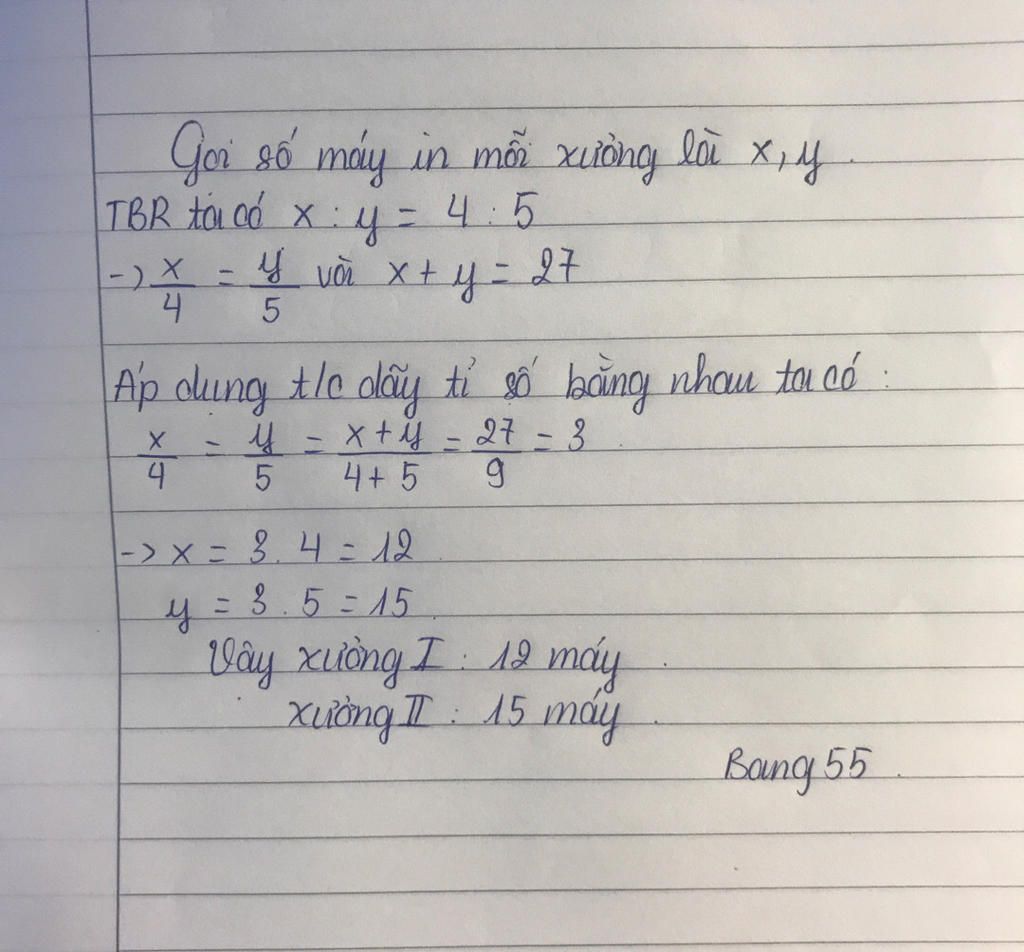 Gọi số máy in mỗi xưởng là x, y.
TBR ta có x : y = 4 : 5
-> x/4 = y/5 với x + y = 27
Áp dụng t/c dãy tỉ số bằng nhau ta có :
x/4 = y/5 = x + y/4 + 5 = 27/9 = 3.
-> x = 3. 4 = 12.
y = 3. 5 = 15.
Vậy xưởng I : 12 máy.
xưởng II : 15 máy.
Bang 55.